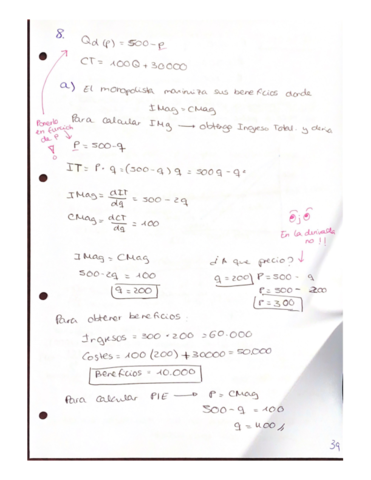 8. Qd (p) = 500 - p
CT = 100Q + 30000
a) El monopolista maximiza sus beneficios donde
IMag = CMag
Ponerlo
en función
de P
Para calcular IMg → obtengo Ingreso Total y deriva
P = 500 - q
IT = P · q = (500 - q) q = 500q - q²
IMag = dIT/dq = 500 - 2q
CMag = dCT/dq = 100
En la derivada
no !!
IMag = CMag
500 - 2q = 100
q = 200
¿A que precio?
q = 200 P = 500 - q
P = 500 - 200
P = 300
Para obtener beneficios:
Ingresos = 300 · 200 = 60.000
Costes = 100 (200) + 30000 = 50.000
Beneficios = 10.000
Para calcular PIE → P = CMag
500 - q = 100
q = 400
39